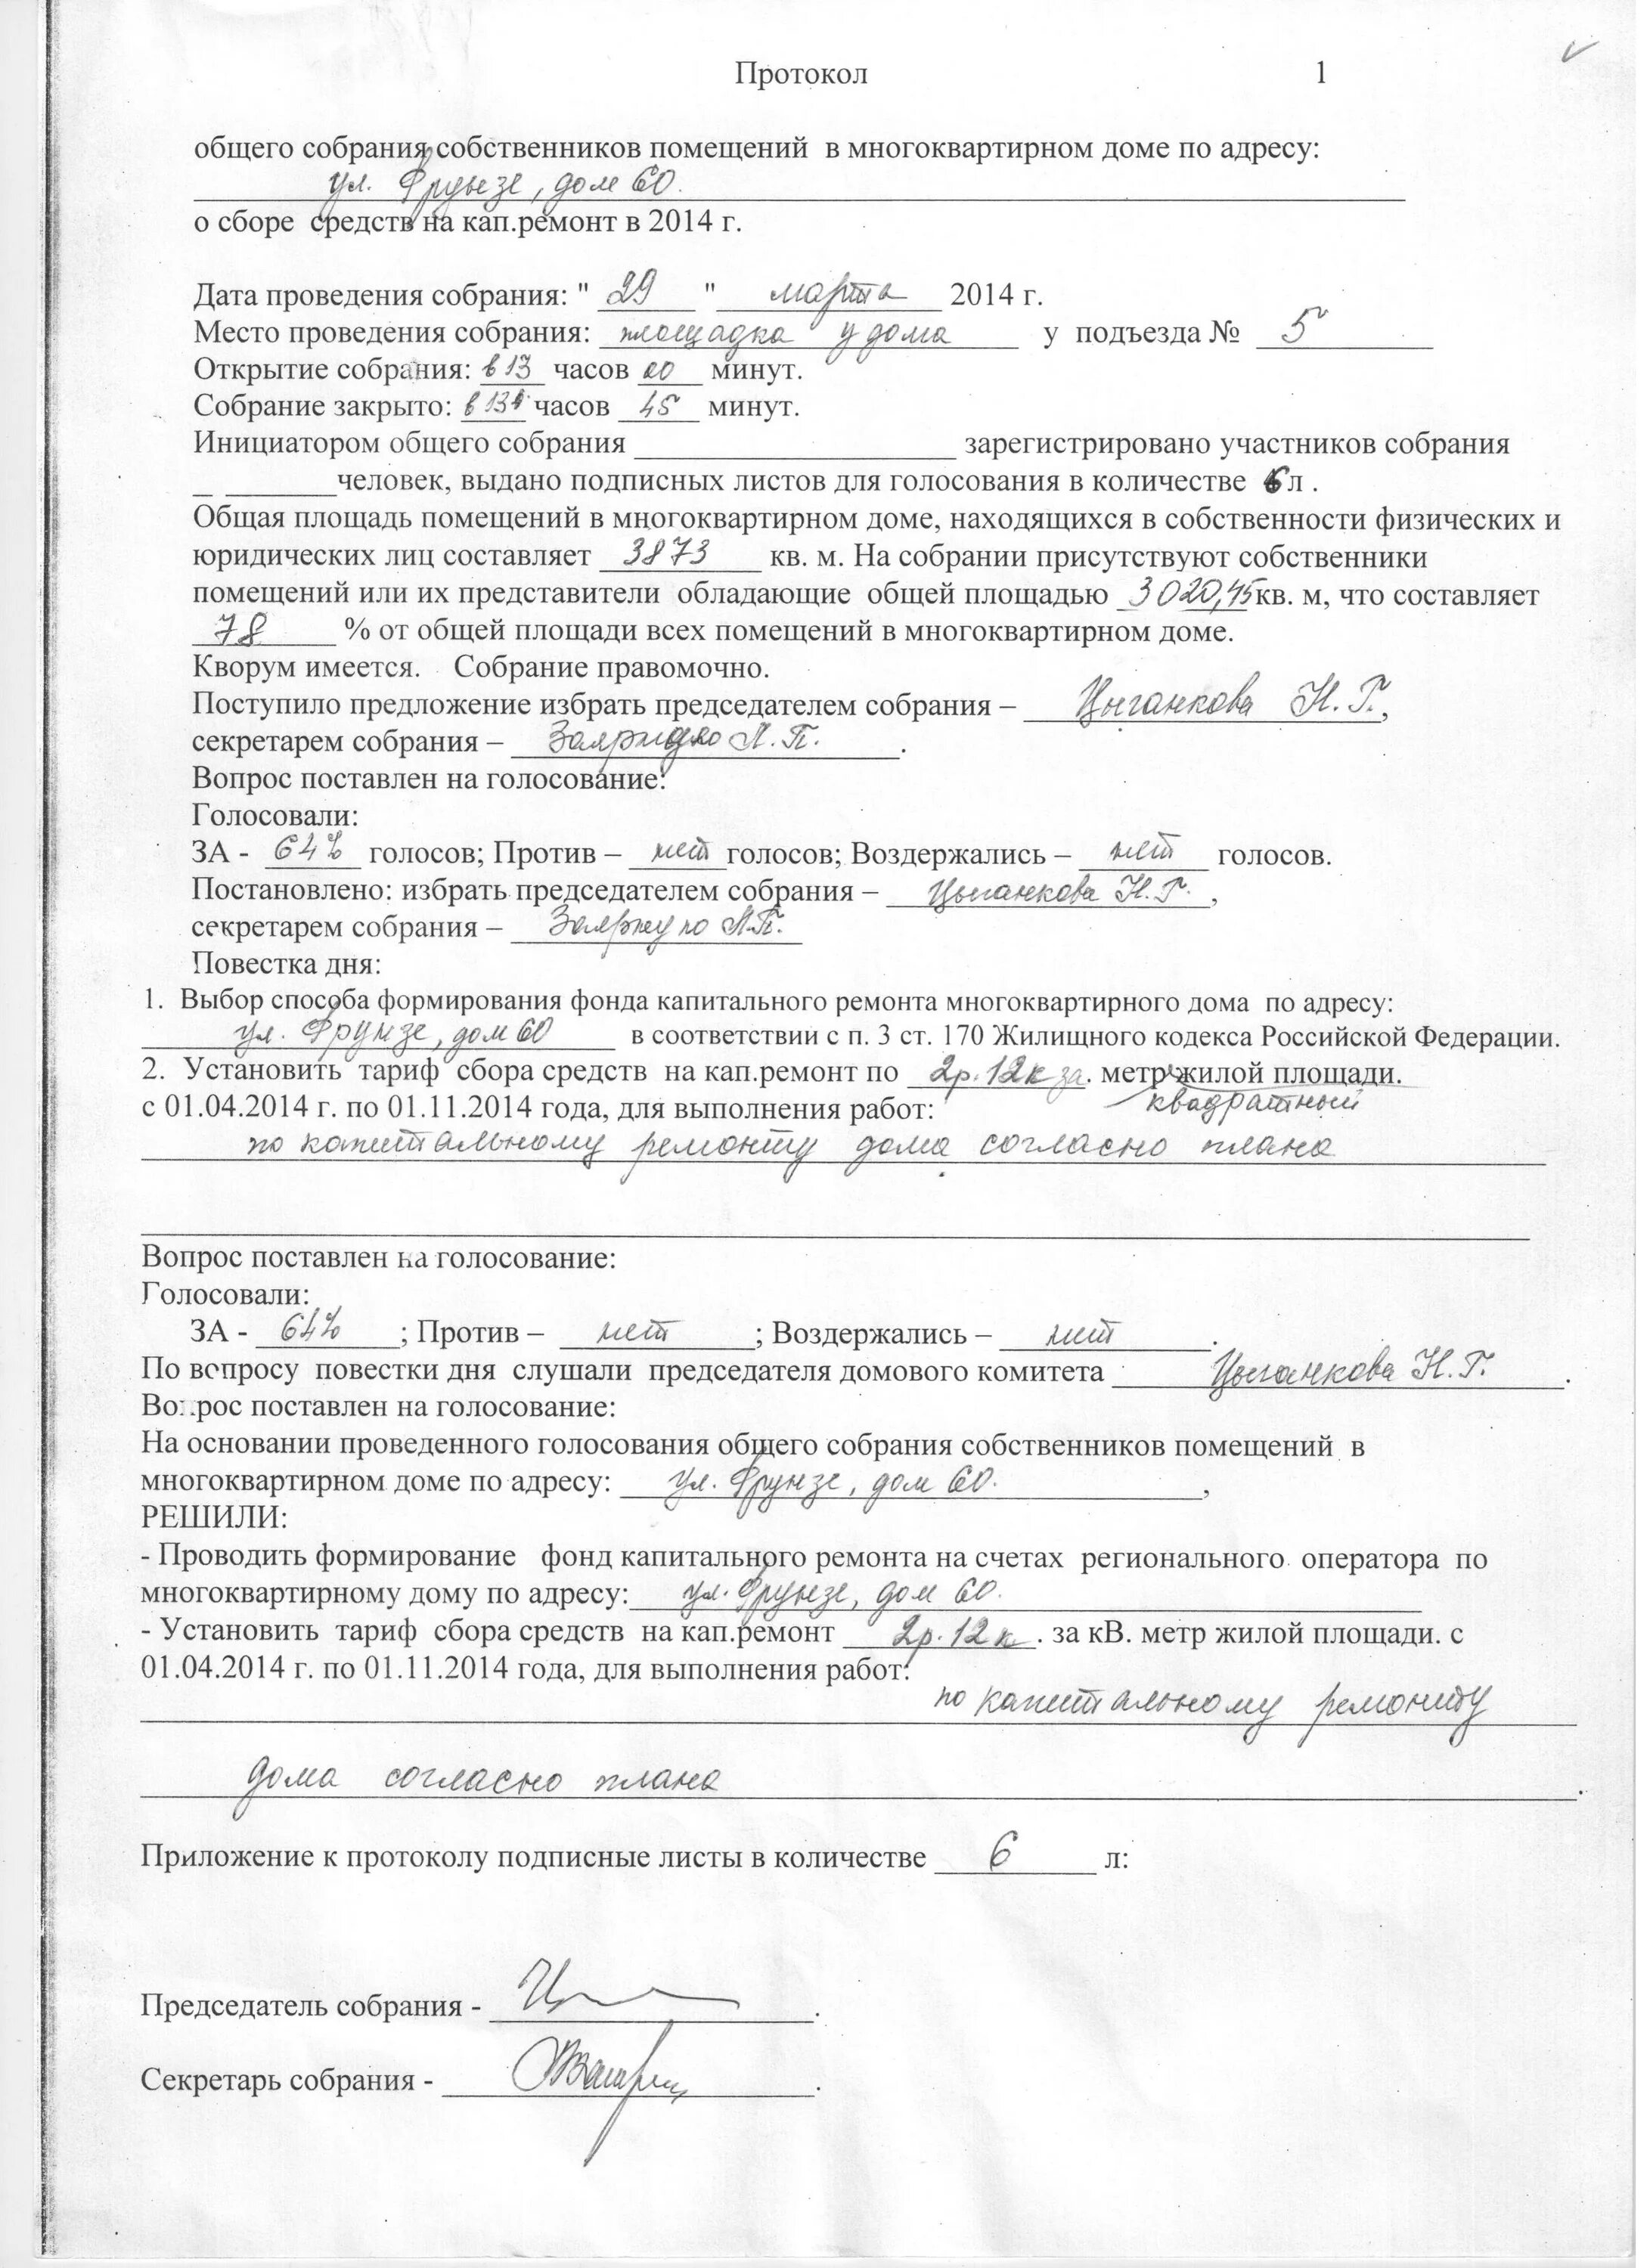 Протокол 1
общего собрания собственников помещений в многоквартирном доме по адресу:
ул. Фрунзе, дом 60.
о сборе средств на кап.ремонт в 2014 г.
Дата проведения собрания: " 29 " марта 2014 г.
Место проведения собрания: площадка у дома у подъезда № 5
Открытие собрания: в 13 часов 00 минут.
Собрание закрыто: в 13 часов 45 минут.
Инициатором общего собрания ____ зарегистрировано участников собрания
_ ____человек, выдано подписных листов для голосования в количестве 6л .
Общая площадь помещений в многоквартирном доме, находящихся в собственности физических и
юридических лиц составляет 3873 кв. м. На собрании присутствуют собственники
помещений или их представители обладающие общей площадью 3020,45кв. м, что составляет
78 % от общей площади всех помещений в многоквартирном доме.
Кворум имеется. Собрание правомочно.
Поступило предложение избрать председателем собрания – Цыганкова Н.Г.,
секретарем собрания – Л.П.
Вопрос поставлен на голосование:
Голосовали:
ЗА - 64% голосов; Против – нет голосов; Воздержались – нет голосов.
Постановлено: избрать председателем собрания – Цыганкова Н.Г.,
секретарем собрания – Л.П.
Повестка дня:
1. Выбор способа формирования фонда капитального ремонта многоквартирного дома по адресу:
ул. Фрунзе, дом 60 в соответствии с п. 3 ст. 170 Жилищного кодекса Российской Федерации.
2. Установить тариф сбора средств на кап.ремонт по 2р.12к за. метр жилой площади.
квадратный
с 01.04.2014 г. по 01.11.2014 года, для выполнения работ:
по капитальному ремонту дома согласно плана
Вопрос поставлен на голосование:
Голосовали:
ЗА - 64% ; Против – нет ; Воздержались – нет .
По вопросу повестки дня слушали председателя домового комитета Цыганкова Н.Г.
Вопрос поставлен на голосование:
На основании проведенного голосования общего собрания собственников помещений в
многоквартирном доме по адресу: ул. Фрунзе, дом 60. ,
РЕШИЛИ:
- Проводить формирование фонд капитального ремонта на счетах регионального оператора по
многоквартирному дому по адресу: ул. Фрунзе, дом 60.
- Установить тариф сбора средств на кап.ремонт 2р.12к . за кВ. метр жилой площади. с
01.04.2014 г. по 01.11.2014 года, для выполнения работ:
по капитальному ремонту
дома согласно плана .
Приложение к протоколу подписные листы в количестве 6 л:
Председатель собрания - .
Секретарь собрания - .